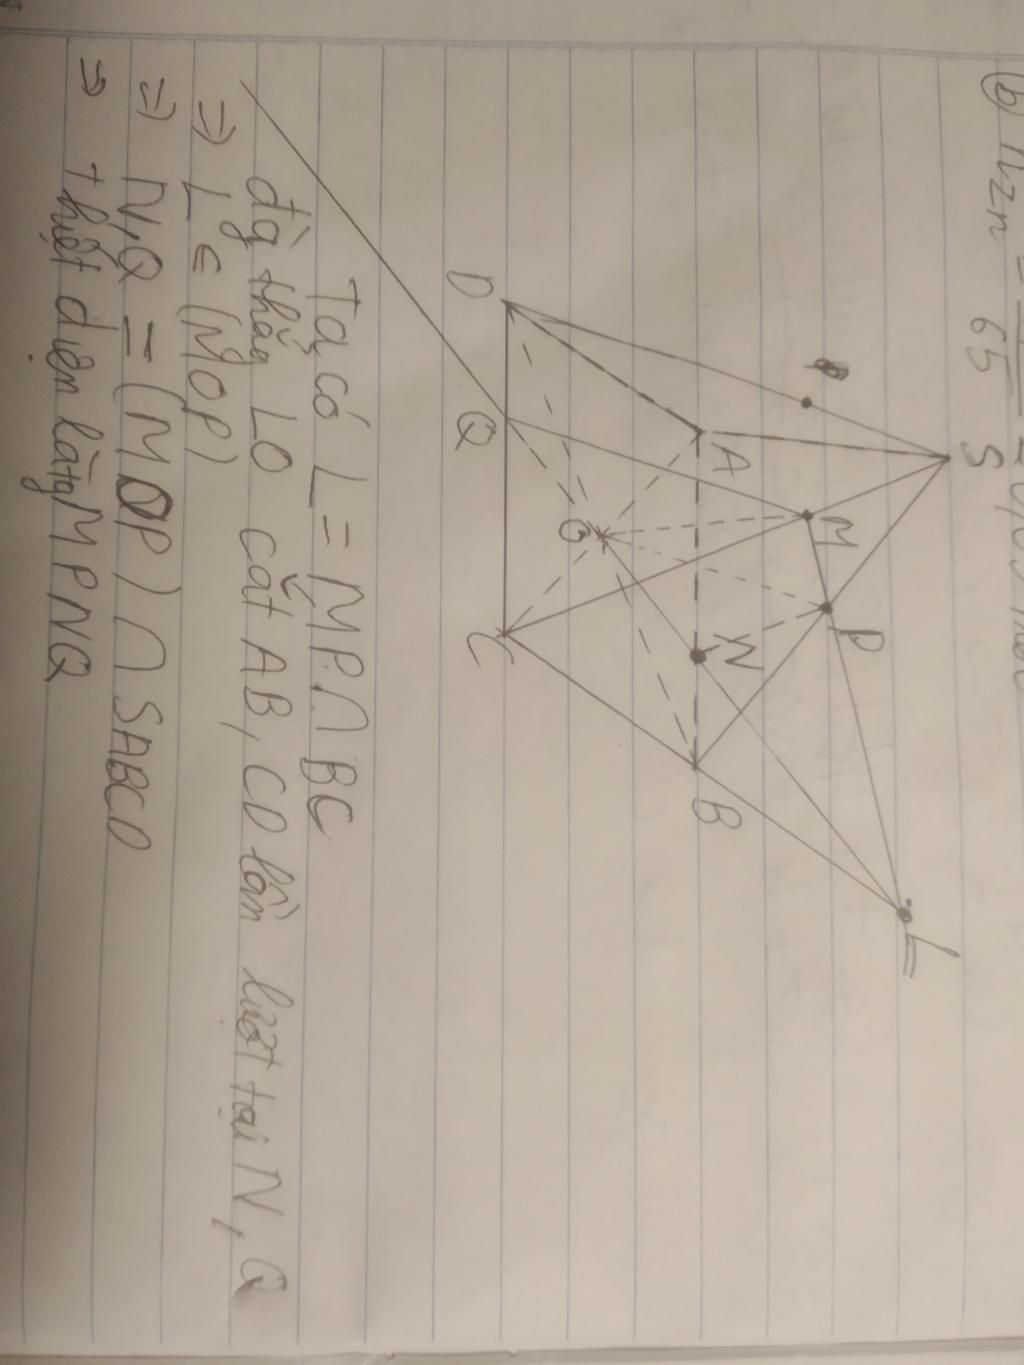 S
M
P
L
A
N
B
O
D
Q
C
Ta có L = MP ∩ BC
đg thẳg LO cắt AB, CD lần lượt tại N, Q
=> L ∈ (MOP)
=> N,Q = (MOP) ∩ SABCD
=> thiết diện là tg MPNQ